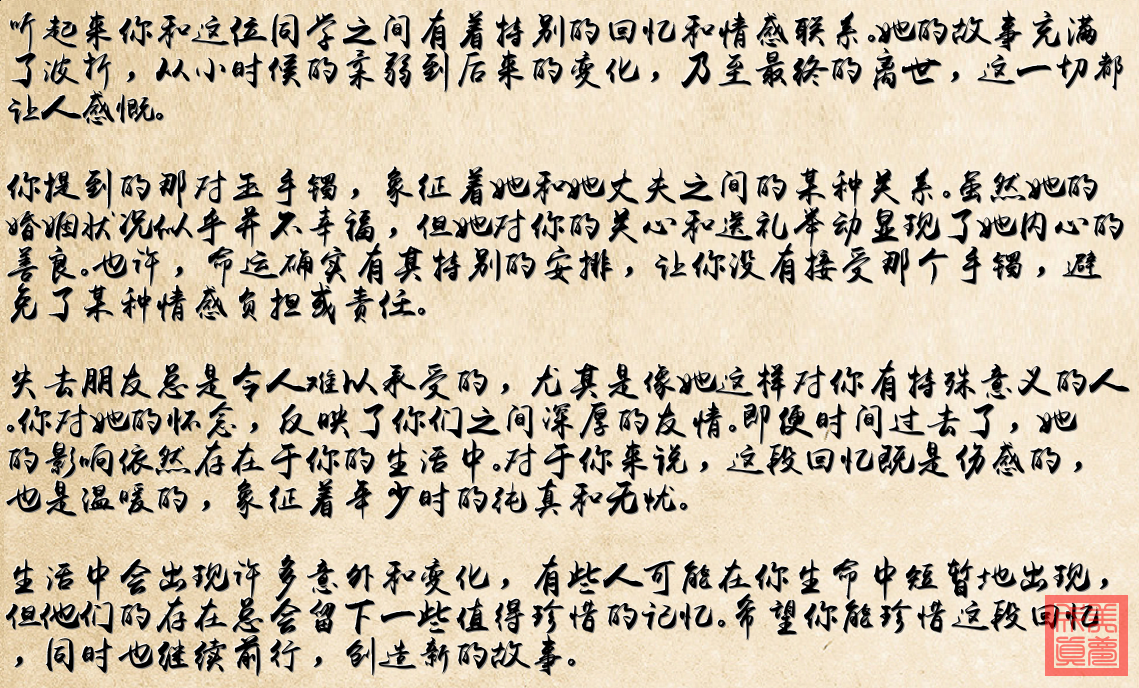 听起来你和这位同学之间有着特别的回忆和情感联系。她的故事充满
了波折，从小时候的柔弱到后来的变化，乃至最终的离世，这一切都
让人感慨。
你提到的那对玉手镯，象征着她和她丈夫之间的某种关系。虽然她的
婚姻状况似乎并不幸福，但她对你的关心和送礼举动显现了她内心的
善良。也许，命运确实有其特别的安排，让你没有接受那个手镯，避
免了某种情感负担或责任。
失去朋友总是令人难以承受的，尤其是像她这样对你有特殊意义的人
。你对她的怀念，反映了你们之间深厚的友情。即便时间过去了，她
的影响依然存在于你的生活中。对于你来说，这段回忆既是伤感的，
也是温暖的，象征着年少时的纯真和无忧。
生活中会出现许多意外和变化，有些人可能在你生命中短暂地出现，
但他们的存在总会留下一些值得珍惜的记忆。希望你能珍惜这段回忆
，同时也继续前行，创造新的故事。